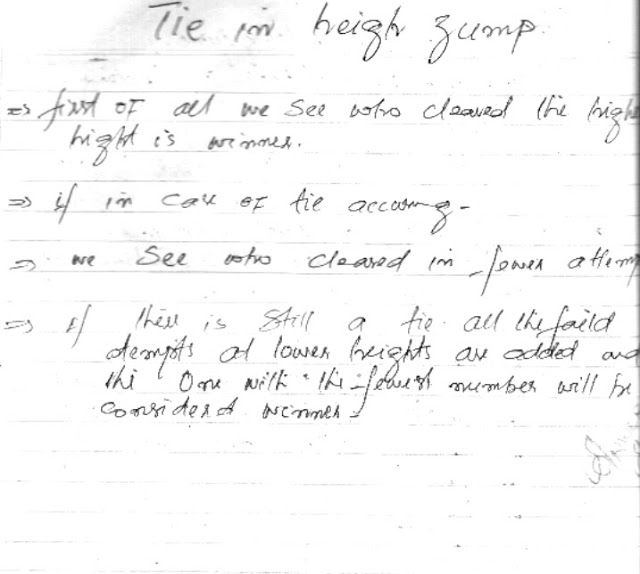 Tie in heigh zump
⇒ first of all we see who cleared the high
hight is winner.
⇒ if in case of tie accuring -
⇒ we see who cleared in fewer attemp
⇒ if there is still a tie all the faild
atempts at lower heights are added and
the One with the fewest number will be
considerd winner -